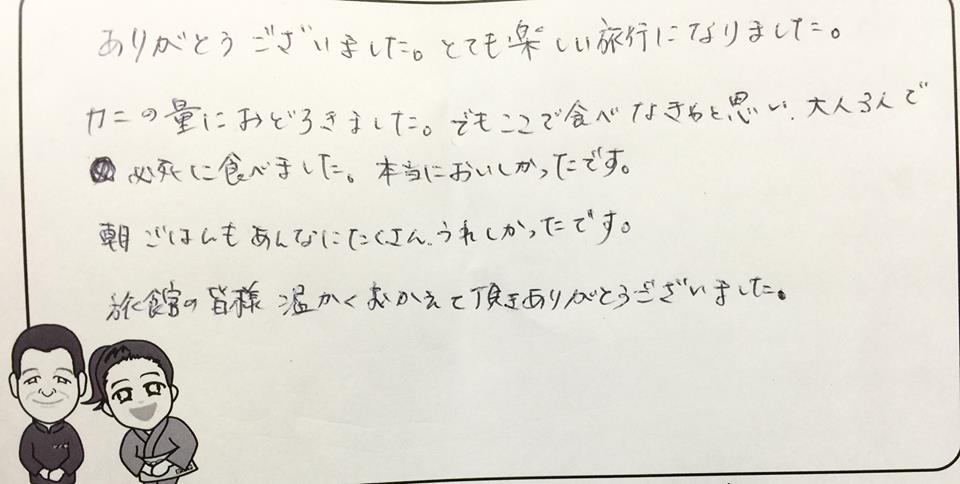 ありがとうございました。とても楽しい旅行になりました。
カニの量におどろきました。でもここで食べなきゃと思い、大人3人で
必死に食べました。本当においしかったです。
朝ごはんもあんなにたくさん、うれしかったです。
旅館の皆様 温かくおむかえて頂きありがとうございました。